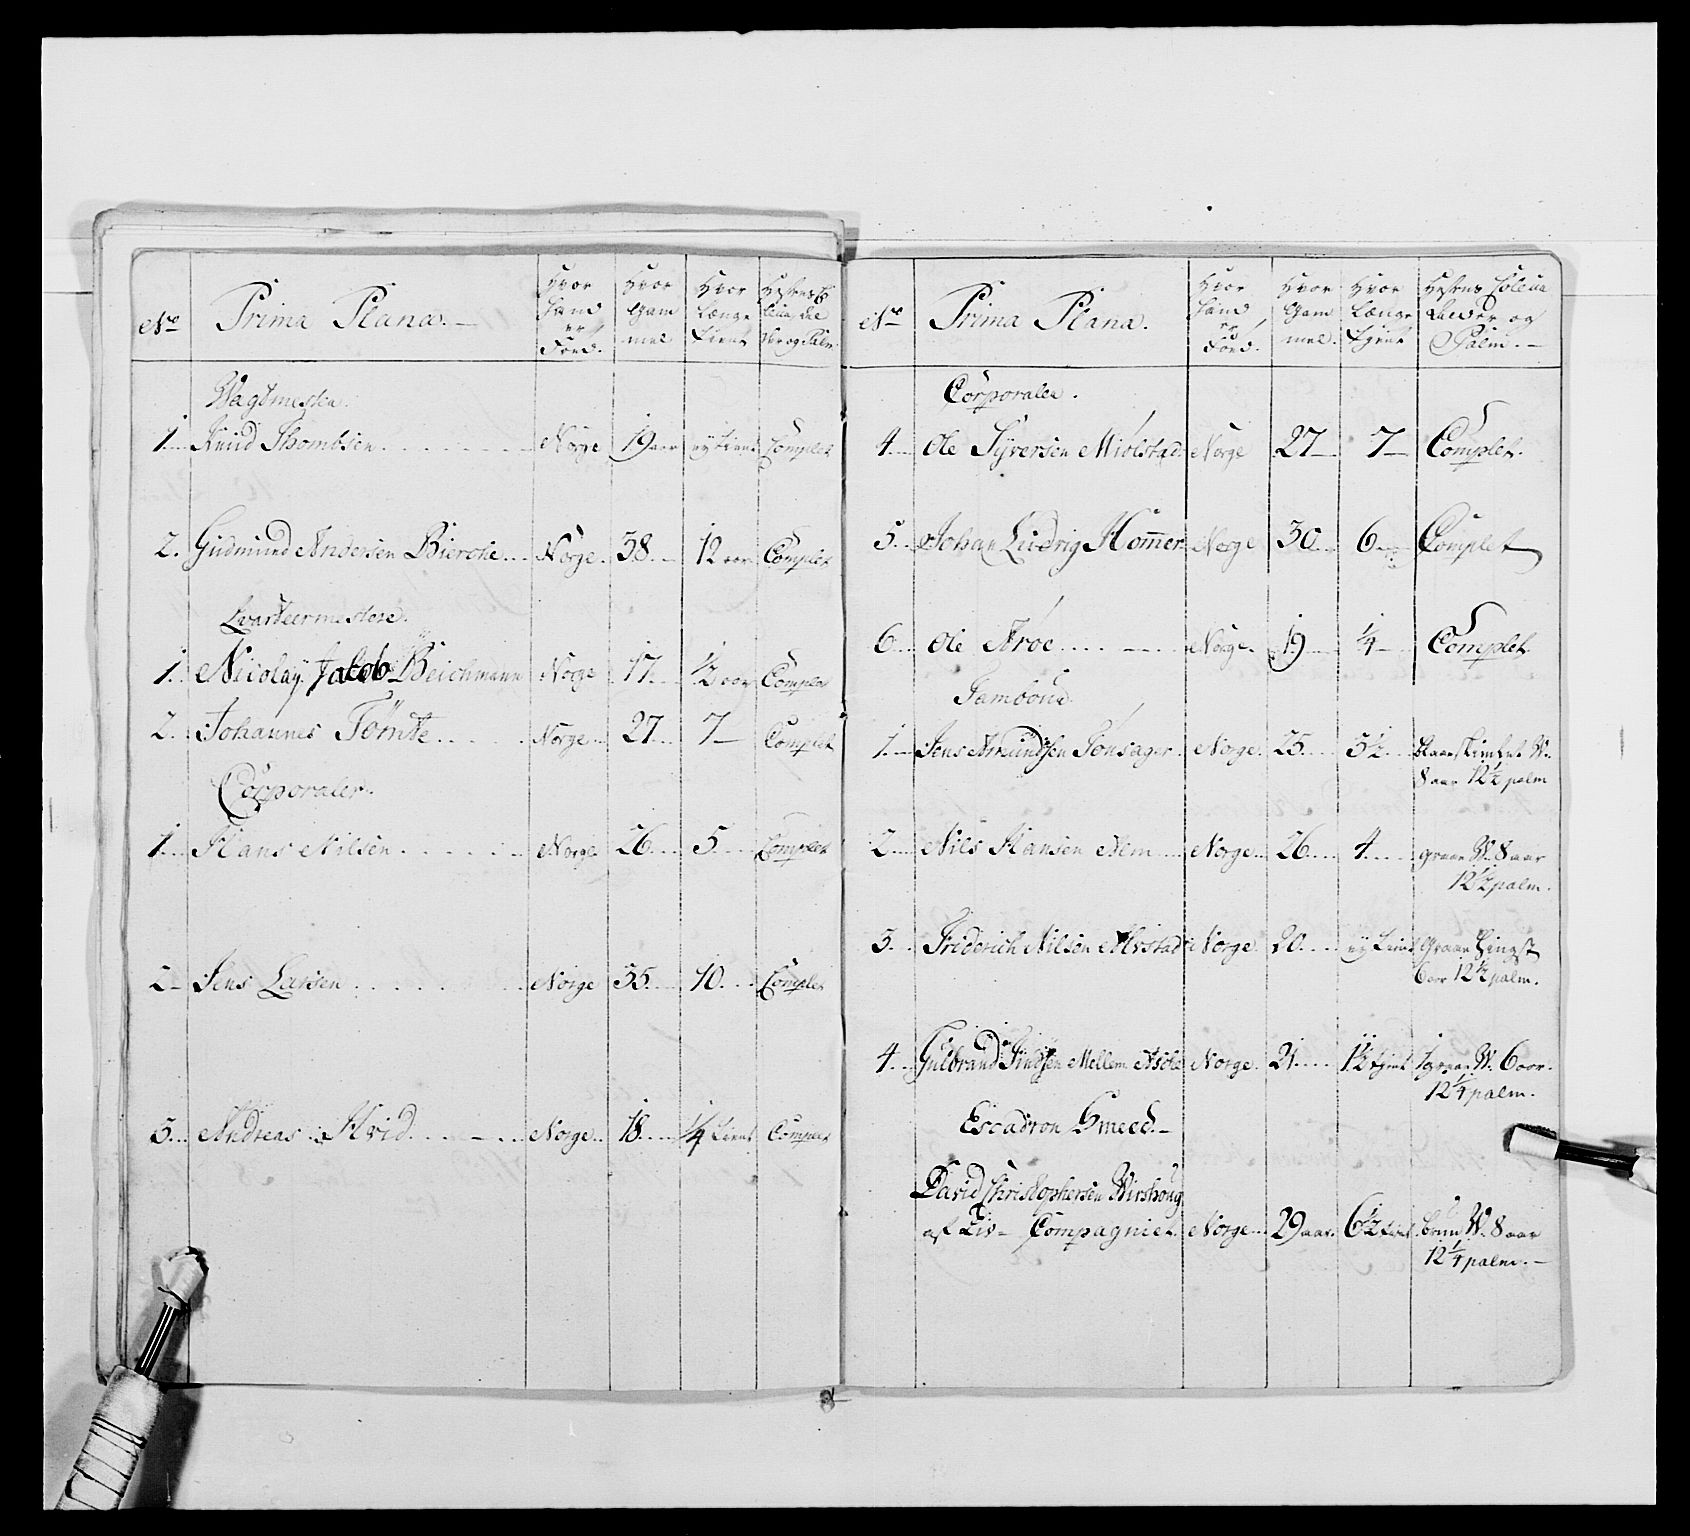 No Prima Plana. Hvor Land er Föed. Hvor Gam mel Hvor Længe Tient
Wagtmester.
1. Knud Thombsen Norge 19 aar ny Tient Complet
2. Gudmund Andersen Bierche Norge. 38 12 aar Complet
Qvarteermestere.
1. Nicolay Jacob Beichmann Norge 17 1/2 aar Complet
2. Johannes Tömte Norge 27 7 Complet
Corporaler.
1. Hans Nilsen Norge 26 5 Complet
2 Jens Larsen Norge 35 10 Complet
3. Andreas Hvid Norge 18 1/4 Tient Complet
No Prima Plana. Hvor Land er Föed. Hvor Gam mel. Hvor Længe Tjent Hestens Couleur Alder og Palm.
Corporaler.
4 Ole Syversen Miölstad Norge 27 7 Complet.
5. Johan Ludvig Hommer Norge 30 6 Complet
6 Ole Aroe Norge. 19 1/4 Complet
Tambour
1. Jens Amundsen Tonsager Norge. 25 5 1/2 W.
8 aar 12 1/2 palm
2 Nils Hansen Alm Norge 26 4 graae W. 8 aar
12 1/2 palm.
3. Friderich Nilsen Alvstad Norge 20 ny Tient Graae Hingst
6 aar 12 1/2 palm.
4 Gulbrand Mellem Norge 21 1 1/2 tjent graae W. 6 aar.
12 1/4 palm.
Escadron Smeed.
David Christophersen
af Liv- Compagniet. Norge 29 aar. 6 1/2 tient bruun W. 8 aar
12 1/4 palm.